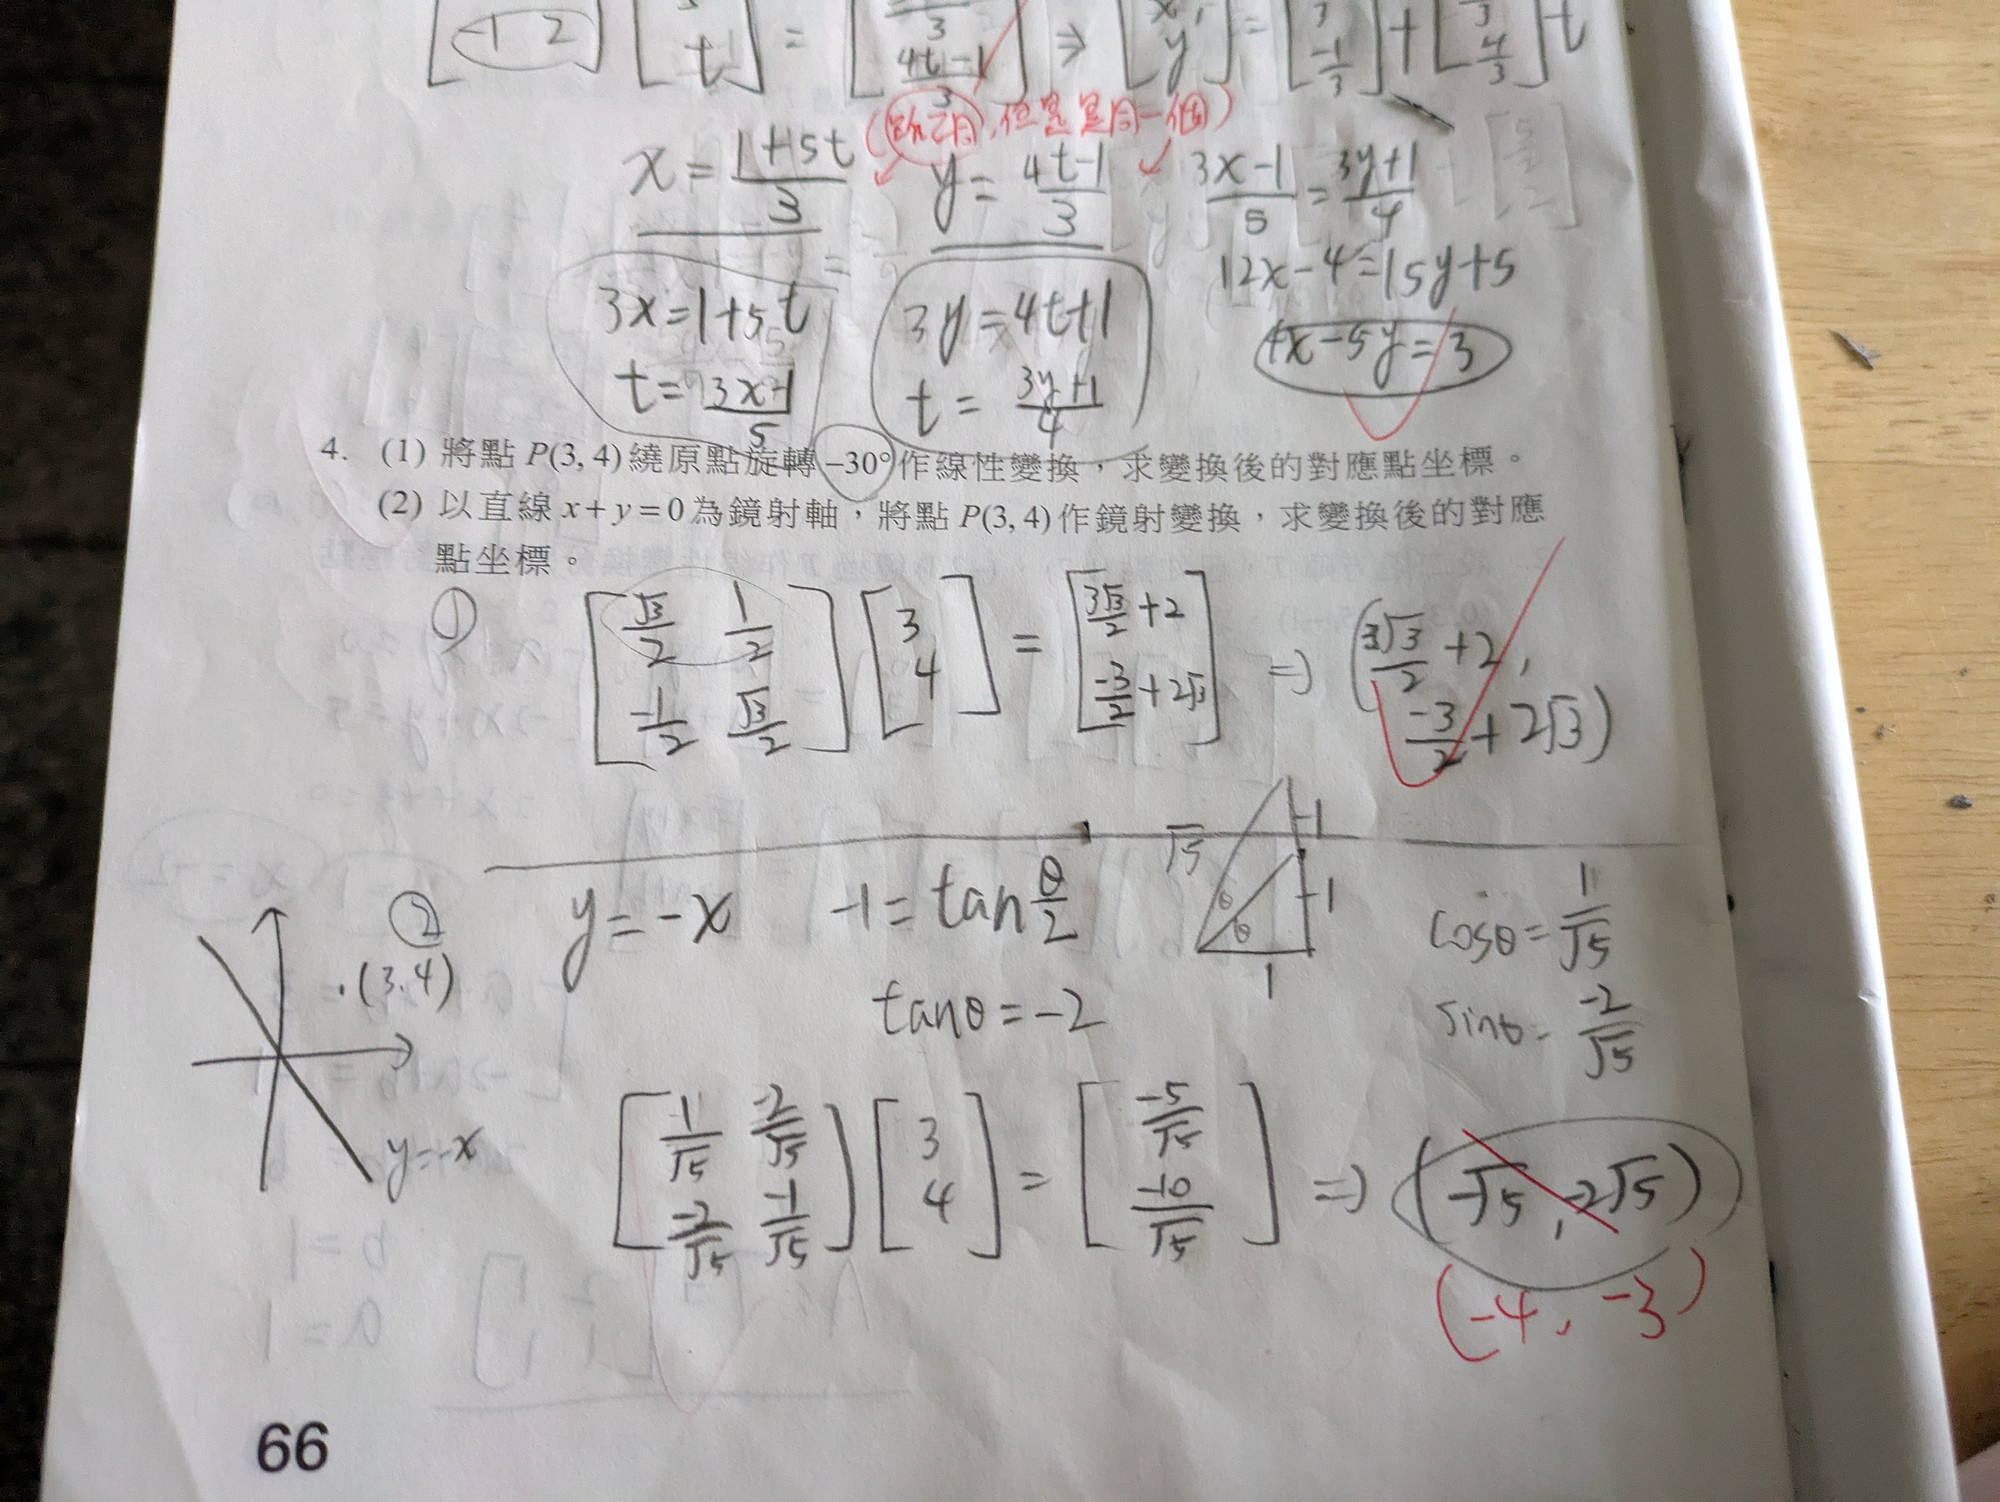 [-1 2] [t] = [4t-1/3] ⇒ [x y] = [-1/3] + [4/3]t
(, 但是是同一個)
x = 1+5t/3 y = 4t-1/3 3x-1/5 = 3y+1/4
12x-4=15y+5
3x=1+5t 3y=4t+1 4x-5y=3
t=3x-1/5 t=3y+1/4
4. (1) 將點 P(3, 4) 繞原點旋轉 −30° 作線性變換，求變換後的對應點坐標。
(2) 以直線 x+y=0 為鏡射軸，將點 P(3, 4) 作鏡射變換，求變換後的對應
點坐標。
① [√3/2 1/2; -1/2 √3/2] [3; 4] = [3√3/2+2; -3/2+2√3] ⇒ (3√3/2+2, -3/2+2√3)
② y=-x -1=tan θ/2 √5 -1 -1 1 θ θ cosθ=1/√5
.(3,4) tanθ=-2 sinθ=-2/√5
y=-x [1/√5 -2/√5; -2/√5 -1/√5] [3; 4] = [-5/√5; -10/√5] ⇒ (-√5, -2√5)
(-4, -3)
66